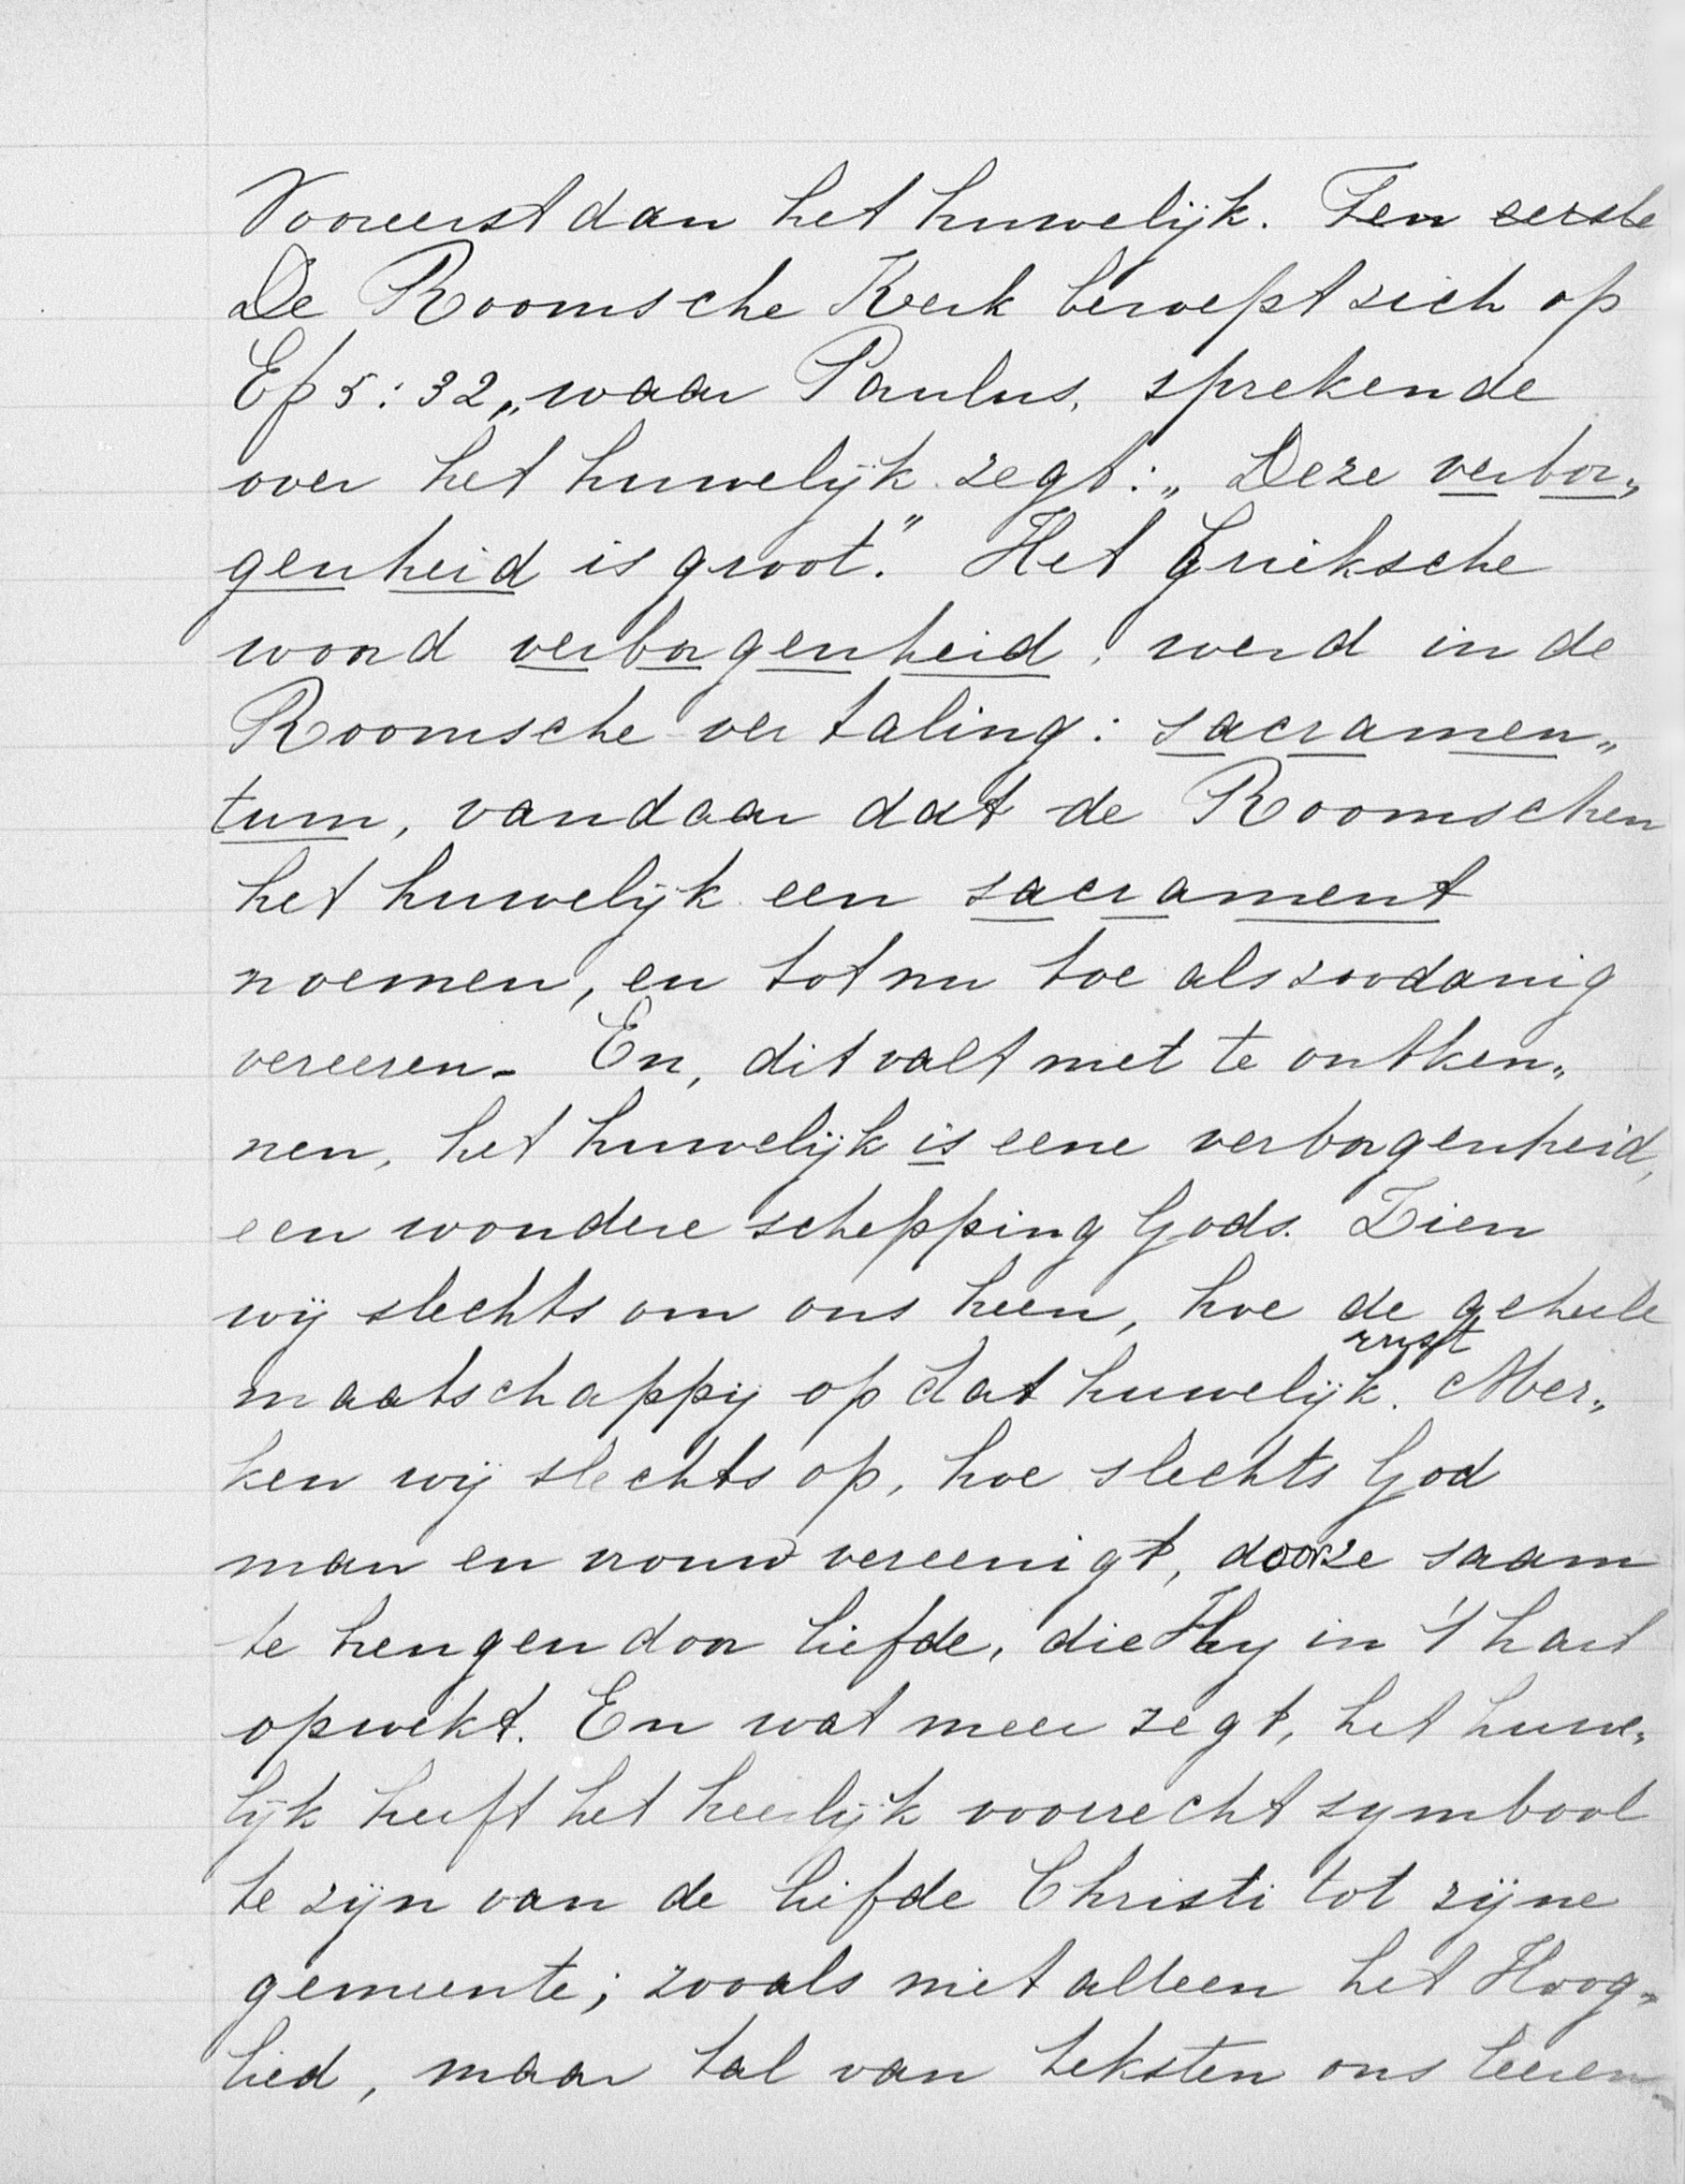 Vooreerst dan het huwelijk. Ten eerste
De Roomsche Kerk beroept zich op
Ef 5:32, waar Paulus, sprekende
over het huwelijk zegt: „Deze verbor„
genheid is groot." Het Grieksche
woord verborgenheid, werd in de
Roomsche vertaling: sacramen„
tum, vandaar dat de Roomschen
het huwelijk een sacrament
noemen, en tot nu toe als zoodanig
vereeren. En, dit valt niet te ontken„
nen, het huwelijk is eene verborgenheid,
een wondere schepping Gods. Zien
wij slechts om ons heen, hoe de geheele
maatschappij op dat huwelijk rust. Mer„
ken wij slechts op, hoe slechts God
man en vrouw vereenigt, door ze saam
te brengen door liefde, die Hij in 't hart
opwekt. En wat meer zegt, het huwe„
lijk heeft het heerlijk voorrecht symbool
te zijn van de liefde Christi tot zijne
gemeente; zooals niet alleen het Hoog„
lied, maar tal van teksten ons leeren